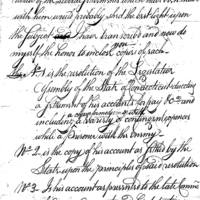 them, would probably shed the best light upon
the subject I have transcribed and now do
myself the honor to inclose you copies of each.
No. 1 is the resolution of the Legislative
Assembly of the State of Connecticut directing
a settlement of his accounts for pay &c and
including a Variety of contingent expences
while a Prisoner with the Enemy
No. 2. is the copy of his account as settled by the
State upon the principles of said resolution
No. 3. Is his account as presented to the late Comm